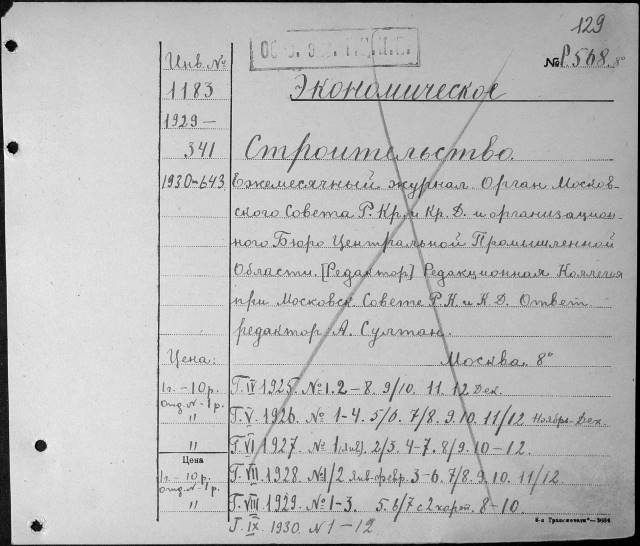 129
№ Р.568. 8°
Инв. №
1183
1929 —
341
1930-643
Экономическое
Строительство.
Ежемесячный журнал. Орган Москов-
ского Совета Р. Кр. и Кр. Д. и организацион-
ного Бюро Центральной Промышленной
Области. [Редактор] Редакционная Коллегия
при Московск. Совете Р. К. и К. Д. Ответ.
редактор А. Султан.
Москва. 8°
Цена:
1 г. – 10 р.
Отд. № – 1 р.
"
"
Г. IV 1925. № 1. 2 – 8. 9/10. 11. 12 Дек.
Г. V. 1926. № 1 – 4. 5/6. 7/8. 9. 10. 11/12 Ноябрь-Дек.
Г. VI 1927. № 1 (янв). 2/3. 4-7. 8/9. 10 – 12.
Цена
1 г. – 10 р.
Отд. № – 1 р.
"
Г. VII 1928 №1/2 Янв-февр. 3-6. 7/8. 9. 10. 11/12.
Г. VIII 1929 № 1-3. 5. 6/7 с 2 карт. 8-10.
Г. IX. 1930. N 1 – 12